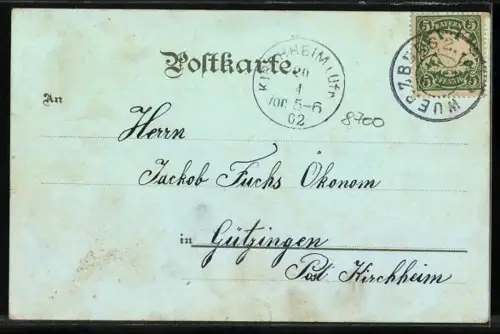 Postkarte.
5 BAYERN 5
KIRCHHEIM U/Fr.
20
4
VOR 5-6
02
8700
An
Herrn
Jackob Fuchs Ökonom
in Gützingen
Post Kirchheim